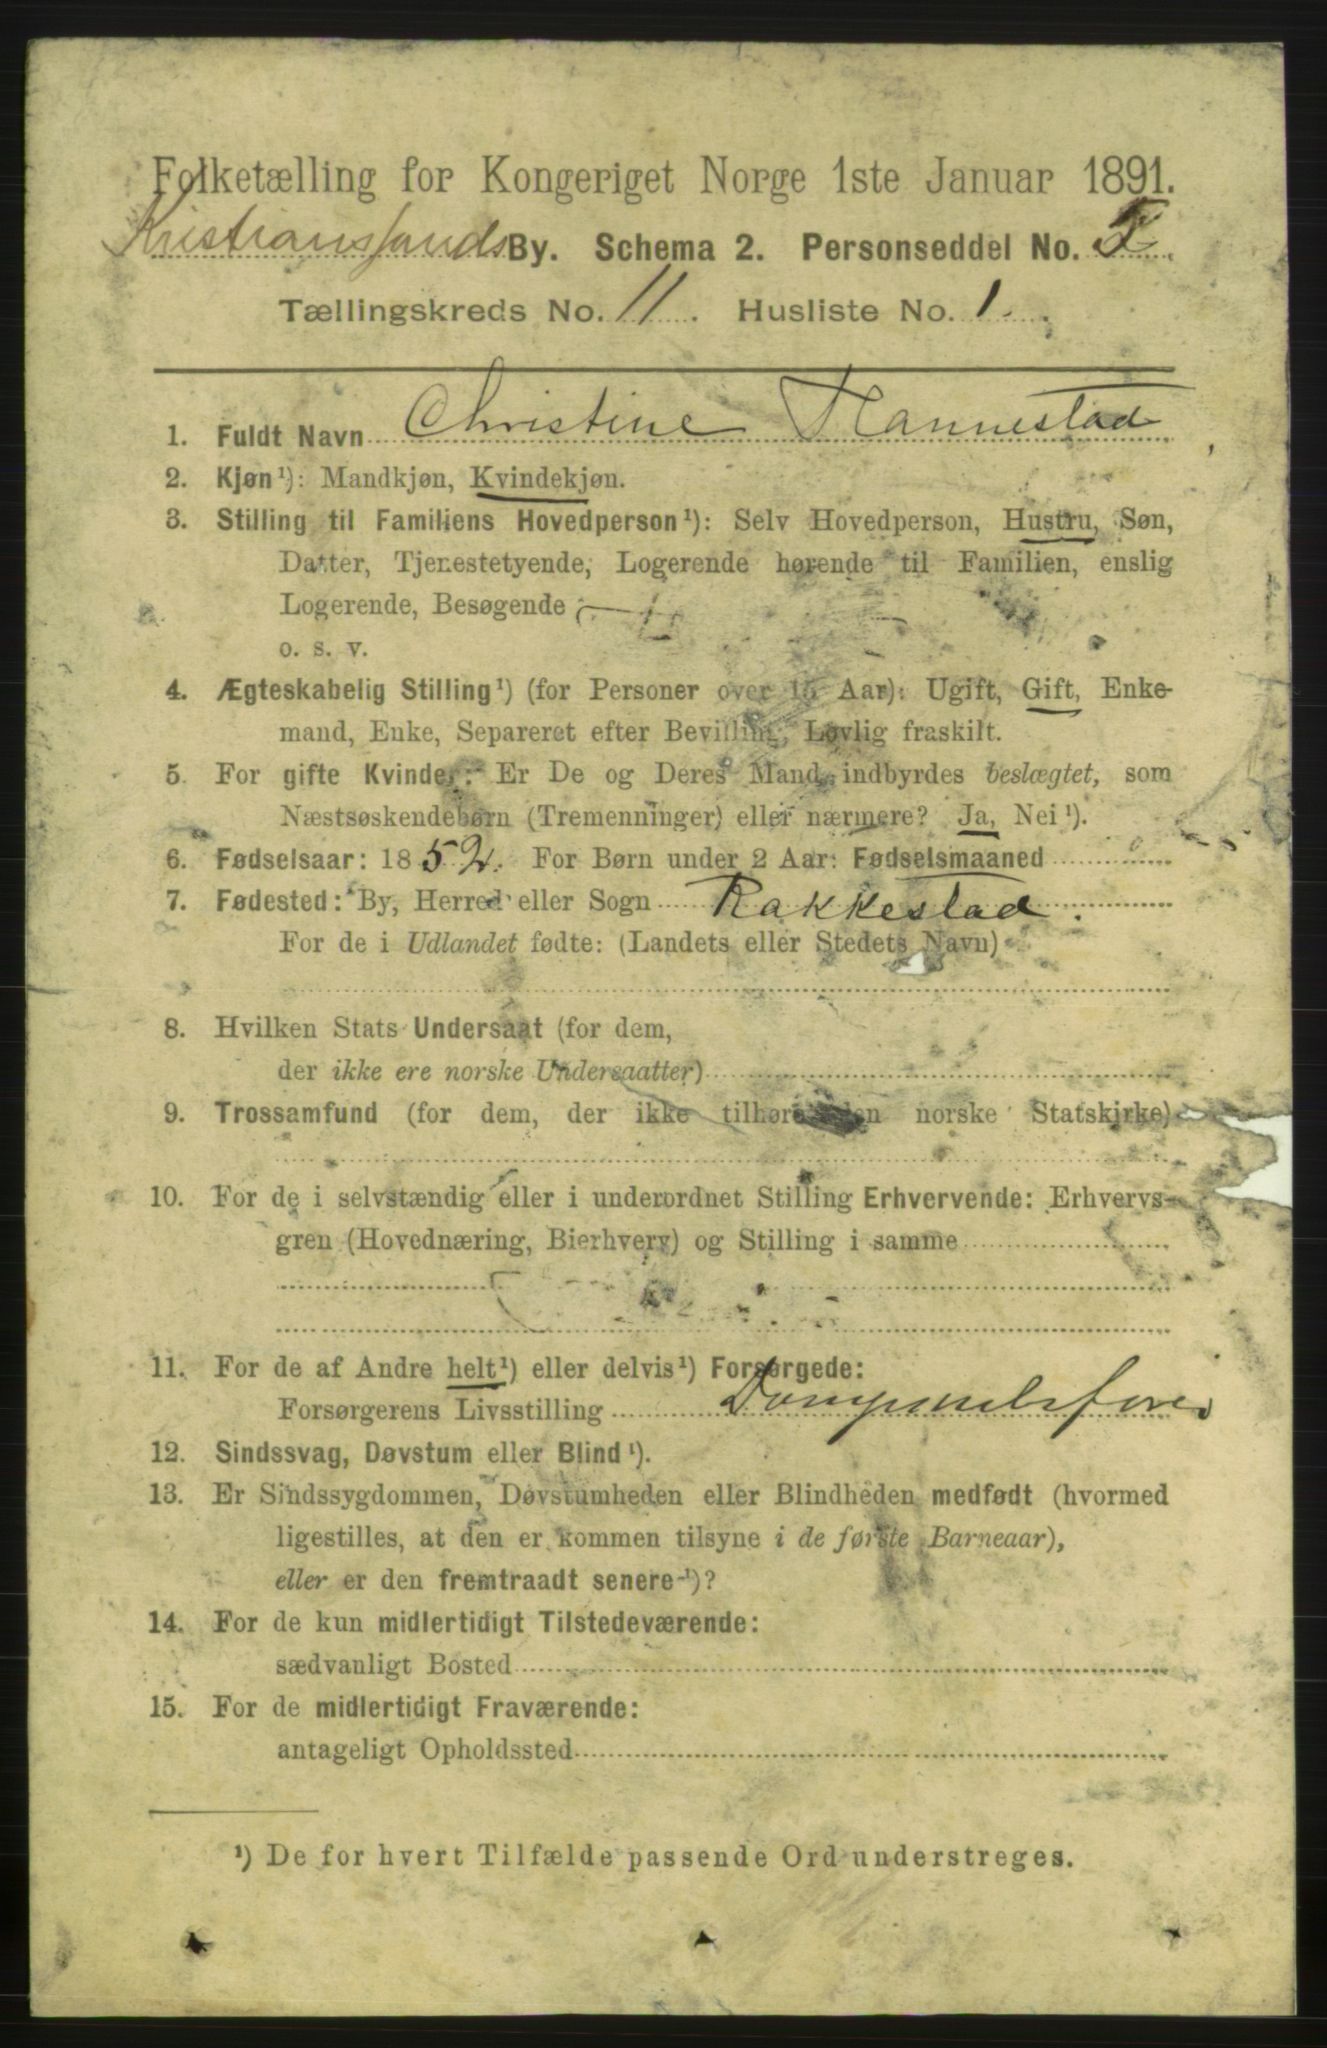 Folketælling for Kongeriget Norge 1ste Januar 1891.
Kristianssands By. Schema 2. Personseddel No.
Tællingskreds No. 11. Husliste No. 1.
1. Fuldt Navn Christine Hannestad
2. Kjøn¹): Mandkjøn, Kvindekjøn.
3. Stilling til Familiens Hovedperson¹): Selv Hovedperson, Hustru, Søn,
Datter, Tjenestetyende, Logerende hørende til Familien, enslig
Logerende, Besøgende
o. s. v.
4. Ægteskabelig Stilling¹) (for Personer over 15 Aar): Ugift, Gift, Enke-
mand, Enke, Separeret efter Bevilling, Lovlig fraskilt.
5. For gifte Kvinder: Er De og Deres Mand indbyrdes beslægtet, som
Næstsøskendebørn (Tremenninger) eller nærmere? Ja, Nei¹).
6. Fødselsaar: 1852. For Børn under 2 Aar: Fødselsmaaned
7. Fødested: By, Herred eller Sogn Rakkestad.
For de i Udlandet fødte: (Landets eller Stedets Navn)
8. Hvilken Stats Undersaat (for dem,
der ikke ere norske Undersaatter)
9. Trossamfund (for dem, der ikke tilhøre den norske Statskirke)
10. For de i selvstændig eller i underordnet Stilling Erhvervende: Erhvervs-
gren (Hovednæring, Bierhverv) og Stilling i samme
11. For de af Andre helt¹) eller delvis¹) Forsørgede:
Forsørgerens Livsstilling
12. Sindssvag, Døvstum eller Blind¹).
13. Er Sindssygdommen, Døvstumheden eller Blindheden medfødt (hvormed
ligestilles, at den er kommen tilsyne i de første Barneaar),
eller er den fremtraadt senere¹)?
14. For de kun midlertidigt Tilstedeværende:
sædvanligt Bosted
15. For de midlertidigt Fraværende:
antageligt Opholdssted
¹) De for hvert Tilfælde passende Ord understreges.